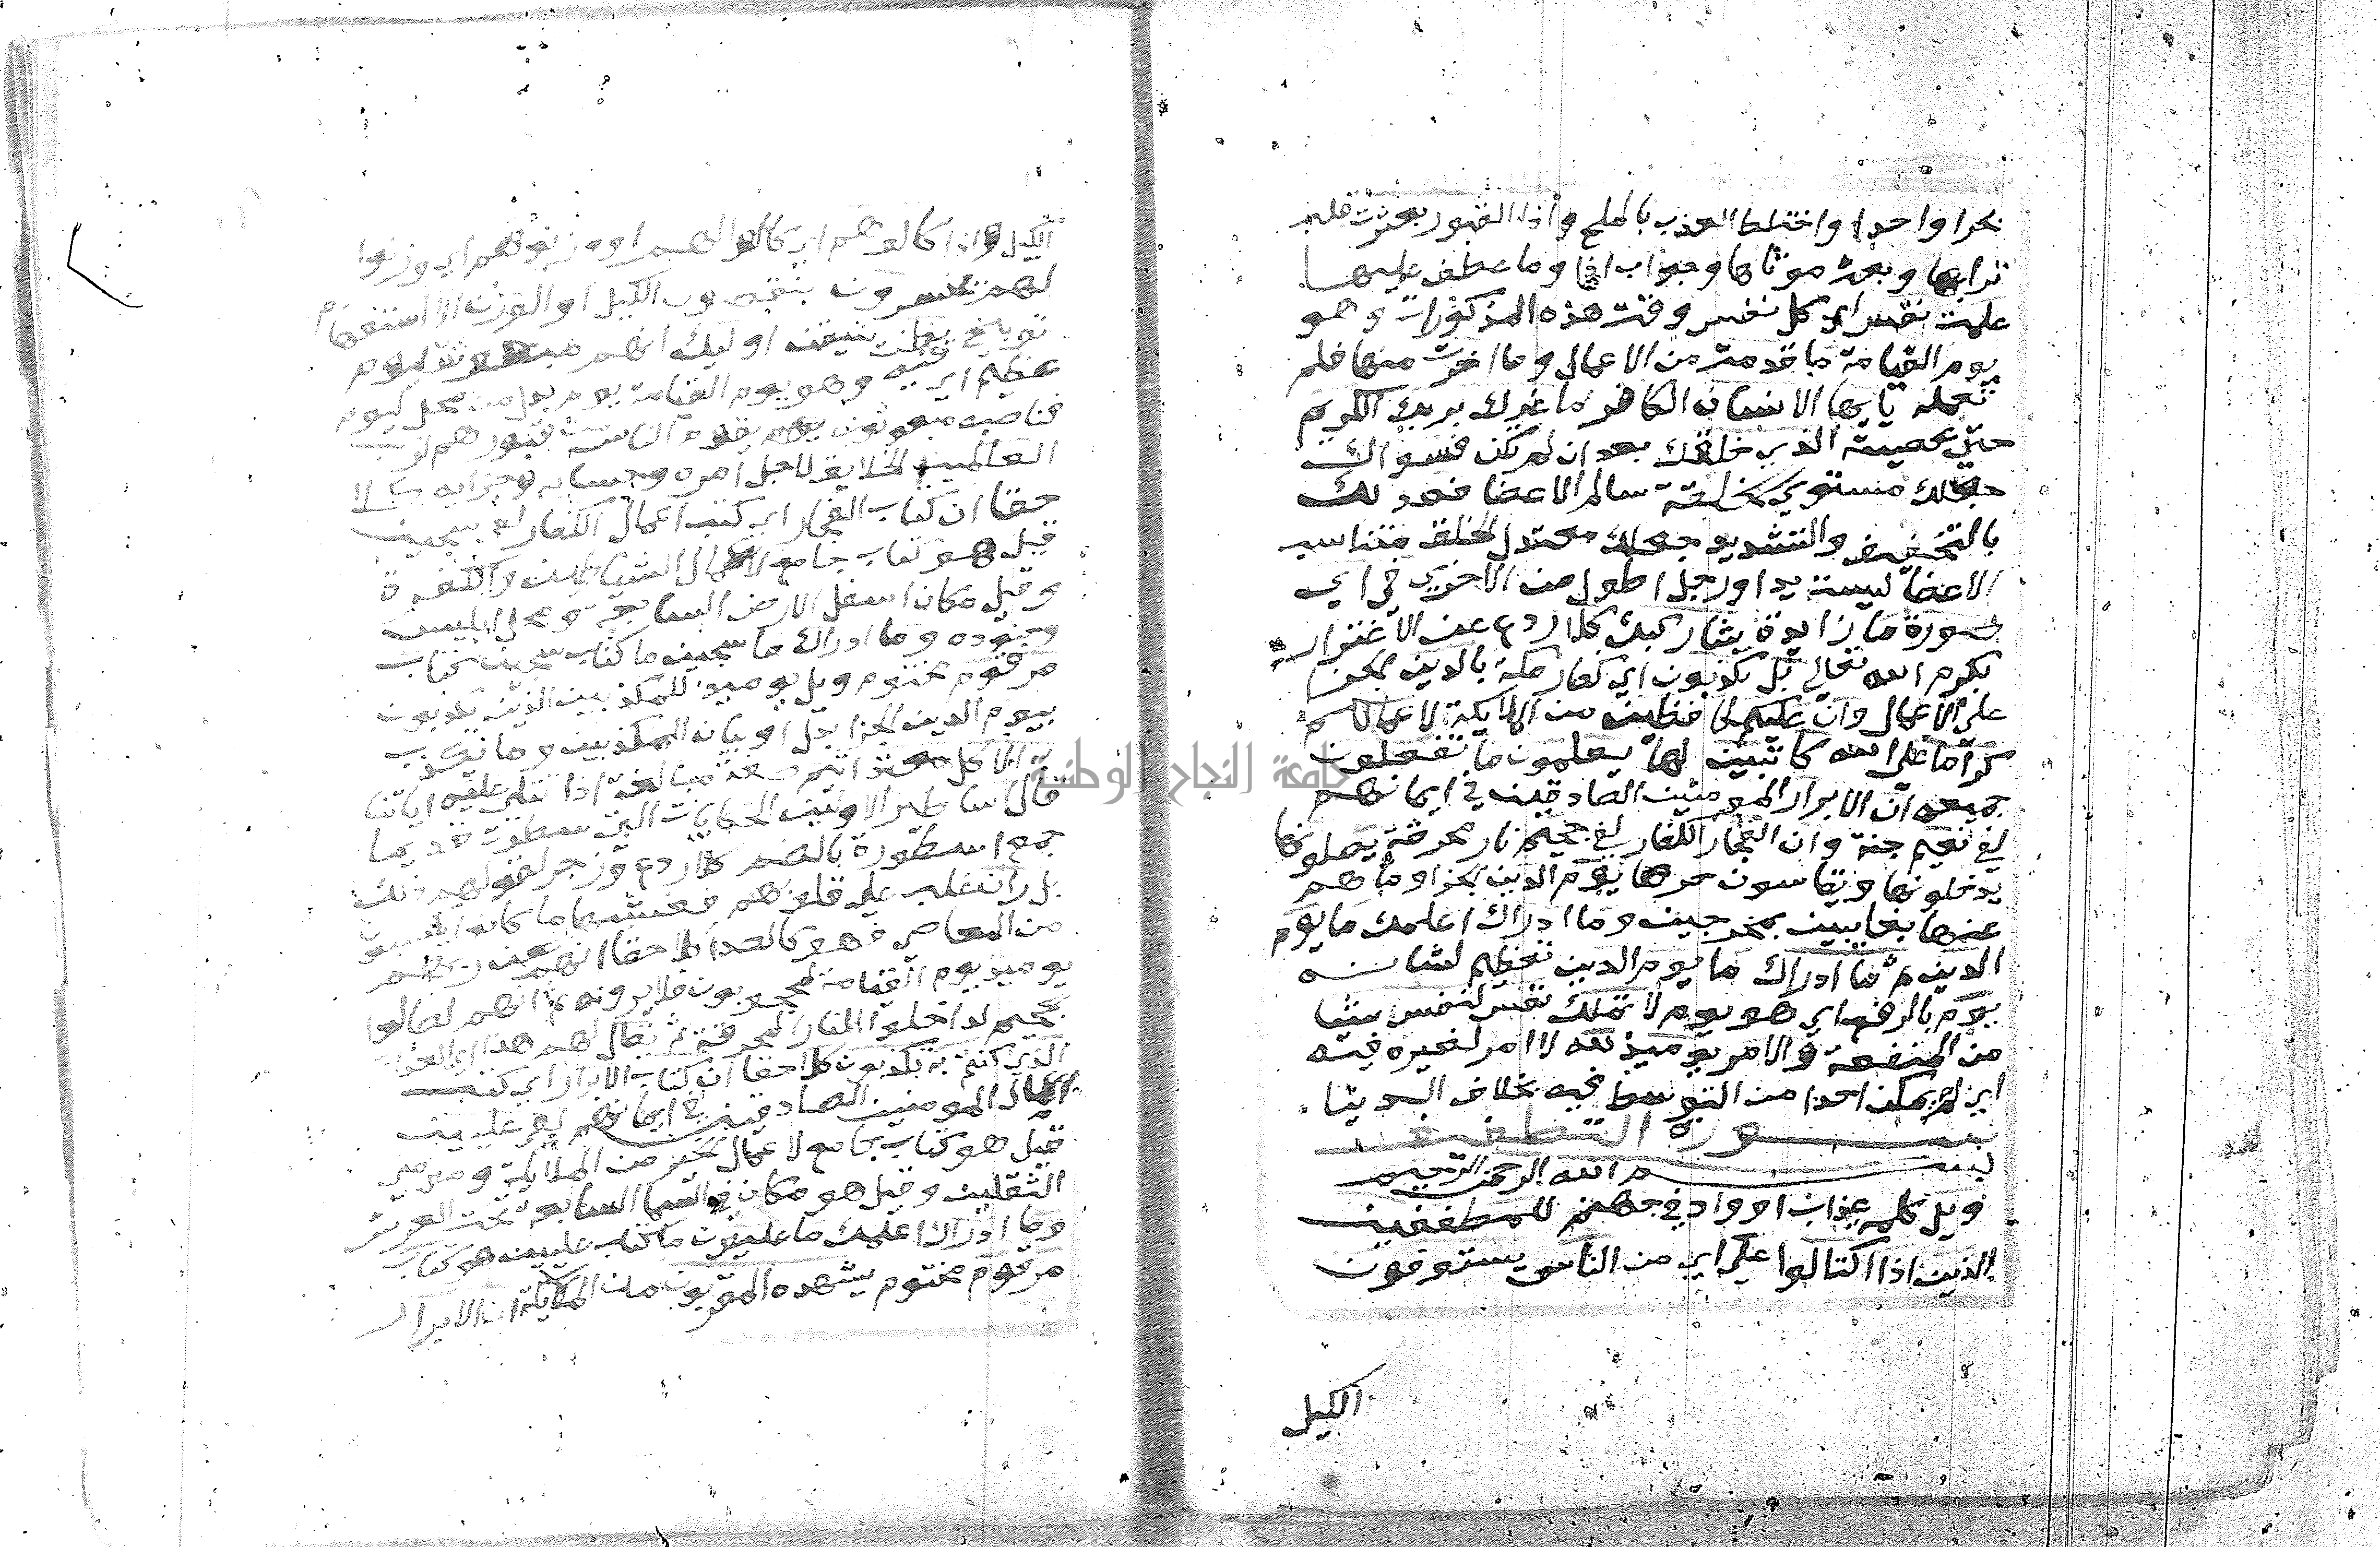 بحرا واحدا واختلط العذب بالملح واذا القبور بعثرت قلب
ترابها وبعث موتاها وجواب اذا وما عطف عليها
علمت نفس اي كل نفس وقت هذه المذكورات وهو
يوم القيامة ما قدمت من الاعمال وما اخرت منها فلم
تعمله يايها الانسان الكافر ما غرك بربك الكريم
حتى عصيته الذي خلقك بعد ان لم تكن فسواك
جعلك مستوي الخلقة سالم الاعضا فعدلك
بالتخفيف والتشديد جعلك معتدل الخلق متناسب
الاعضا ليست يد او رجل اطول من الاخرى في اي
صورة ما زايدة شا ركبك كلا ردع عن الاغترار
بكرم الله تعالى بل تكذبون اي كفار مكة بالدين الجزا
على الاعمال وان عليكم لحافظين من الملايكة لاعمالكم
كراما على الله كاتبين لها يعلمون ما تفعلون
جميعه ان الابرار المومنين الصادقين في ايمانهم
لفي نعيم جنة وان الفجار الكفار لفي جحيم نار محرقة يصلونها
يدخلونها ويقاسون حرها يوم الدين الجزا وما هم
عنها بغايبين بمخرجين وما ادراك اعلمك ما يوم
الدين ثم ما ادراك ما يوم الدين تعظيم لشانه
يوم بالرفع اي هو يوم لا تملك نفس لنفس شيا
من المنفعة والامر يوميذ لله لا امر لغيره فيه
اي لم يمكن احدا من التوسط فيه بخلاف الدنيا
سورة التطفيف
بسم الله الرحمن الرحيم
ويل كلمة عذاب او واد في جهنم للمطففين
الذين اذا اكتالوا على اي من الناس يستوفون
الكيل
الكيل واذا كالوهم اي كالوا لهم او وزنوهم اي وزنوا
لهم يخسرون ينقصون الكيل او الوزن الا استفهام
توبيخ يظن يتيقن اوليك انهم مبعوثون ليوم
عظيم اي فيه وهو يوم القيامة يوم بدل من محل ليوم
فناصبه مبعوثون يقوم الناس من قبورهم لرب
العالمين الخلايق لاجل امره وحسابه وجزايه كلا
حقا ان كتاب الفجار اي كتب اعمال الكفار لفي سجين
قيل هو كتاب جامع لاعمال الشياطين والكفرة
وقيل مكان اسفل الارض السابعة وهو محل ابليس
وجنوده وما ادراك ما سجين ما كتاب سجين كتاب
مرقوم مختوم ويل يوميذ للمكذبين الذين يكذبون
بيوم الدين الجزا بدل او بيان للمكذبين وما يكذب
به الا كل معتد اثيم صيغة مبالغة اذا تتلى عليه اياتنا
قال اساطير الاولين الحكايات التي سطرت قديما
جمع اسطورة بالضم كلا ردع وزجر لقولهم ذلك
بل ران غلب على قلوبهم فغشيها ما كانوا يكسبون
من المعاصي فهو كالصدا كلا حقا انهم عن ربهم
يوميذ يوم القيامة لمحجوبون فلا يرونه ثم انهم لصالوا
الجحيم لداخلوا النار المحرقة ثم يقال لهم هذا اي العذاب
الذي كنتم به تكذبون كلا حقا ان كتاب الابرار اي كتب
اعمال المومنين الصادقين في ايمانهم لفي عليين
قيل هو كتاب جامع لاعمال الخير من الملايكة ومومني
الثقلين وقيل هو مكان في السما السابعة تحت العرش
وما ادراك اعلمك ما عليون ما كتاب عليين هو كتاب
مرقوم مختوم يشهده المقربون من الملايكة ان الابرار
جامعة النجاح الوطنية